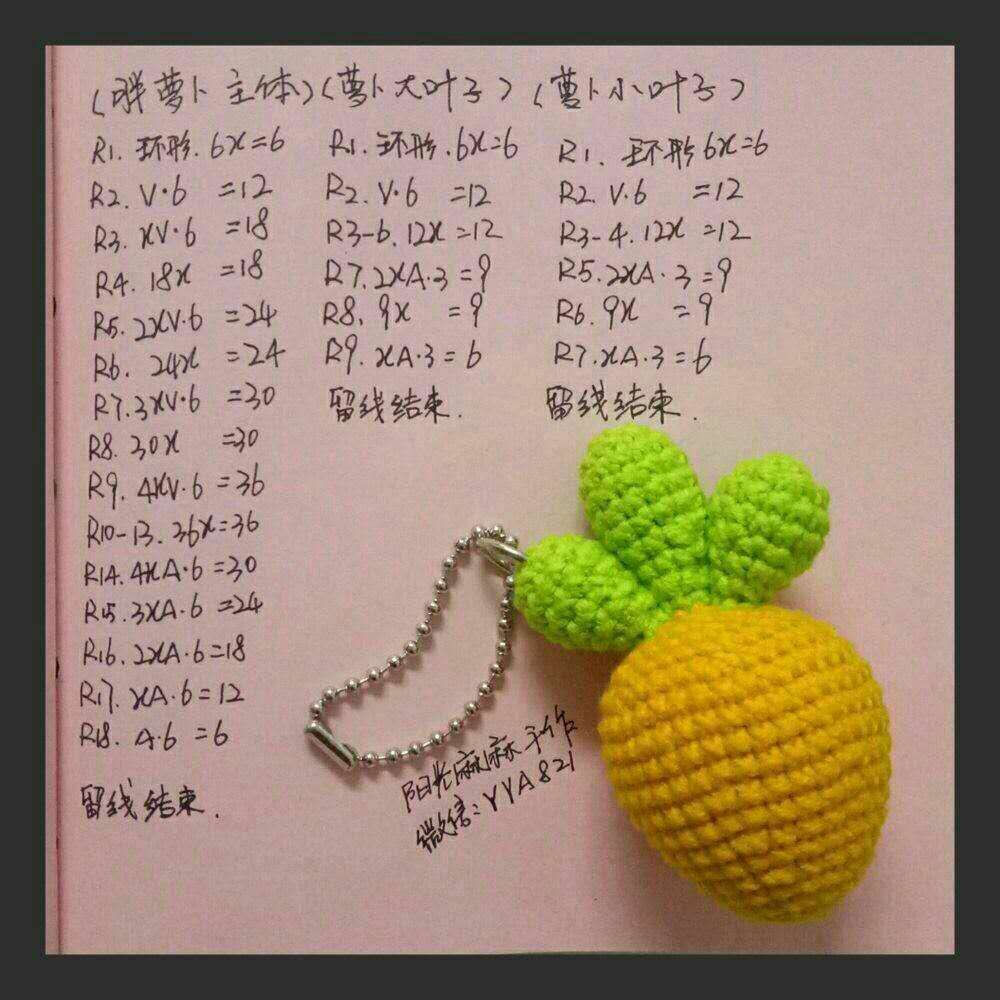 (胖萝卜主体)
R1. 环形. 6X=6
R2. V·6 =12
R3. XV·6 =18
R4. 18X =18
R5. 2XV·6 =24
R6. 24X =24
R7. 3XV·6 =30
R8. 30X =30
R9. 4XV·6 =36
R10-13. 36X=36
R14. 4XA·6=30
R15. 3XA·6=24
R16. 2XA·6=18
R17. XA·6=12
R18. A·6 =6
留线结束.
(萝卜大叶子)
R1. 环形. 6X=6
R2. V·6 =12
R3-6. 12X=12
R7. 2XA·3=9
R8. 9X =9
R9. XA·3=6
留线结束.
(萝卜小叶子)
R1. 环形6X=6
R2. V·6 =12
R3-4. 12X=12
R5. 2XA·3=9
R6. 9X =9
R7. XA·3=6
留线结束.
阳光麻麻手作
微信:YYA821